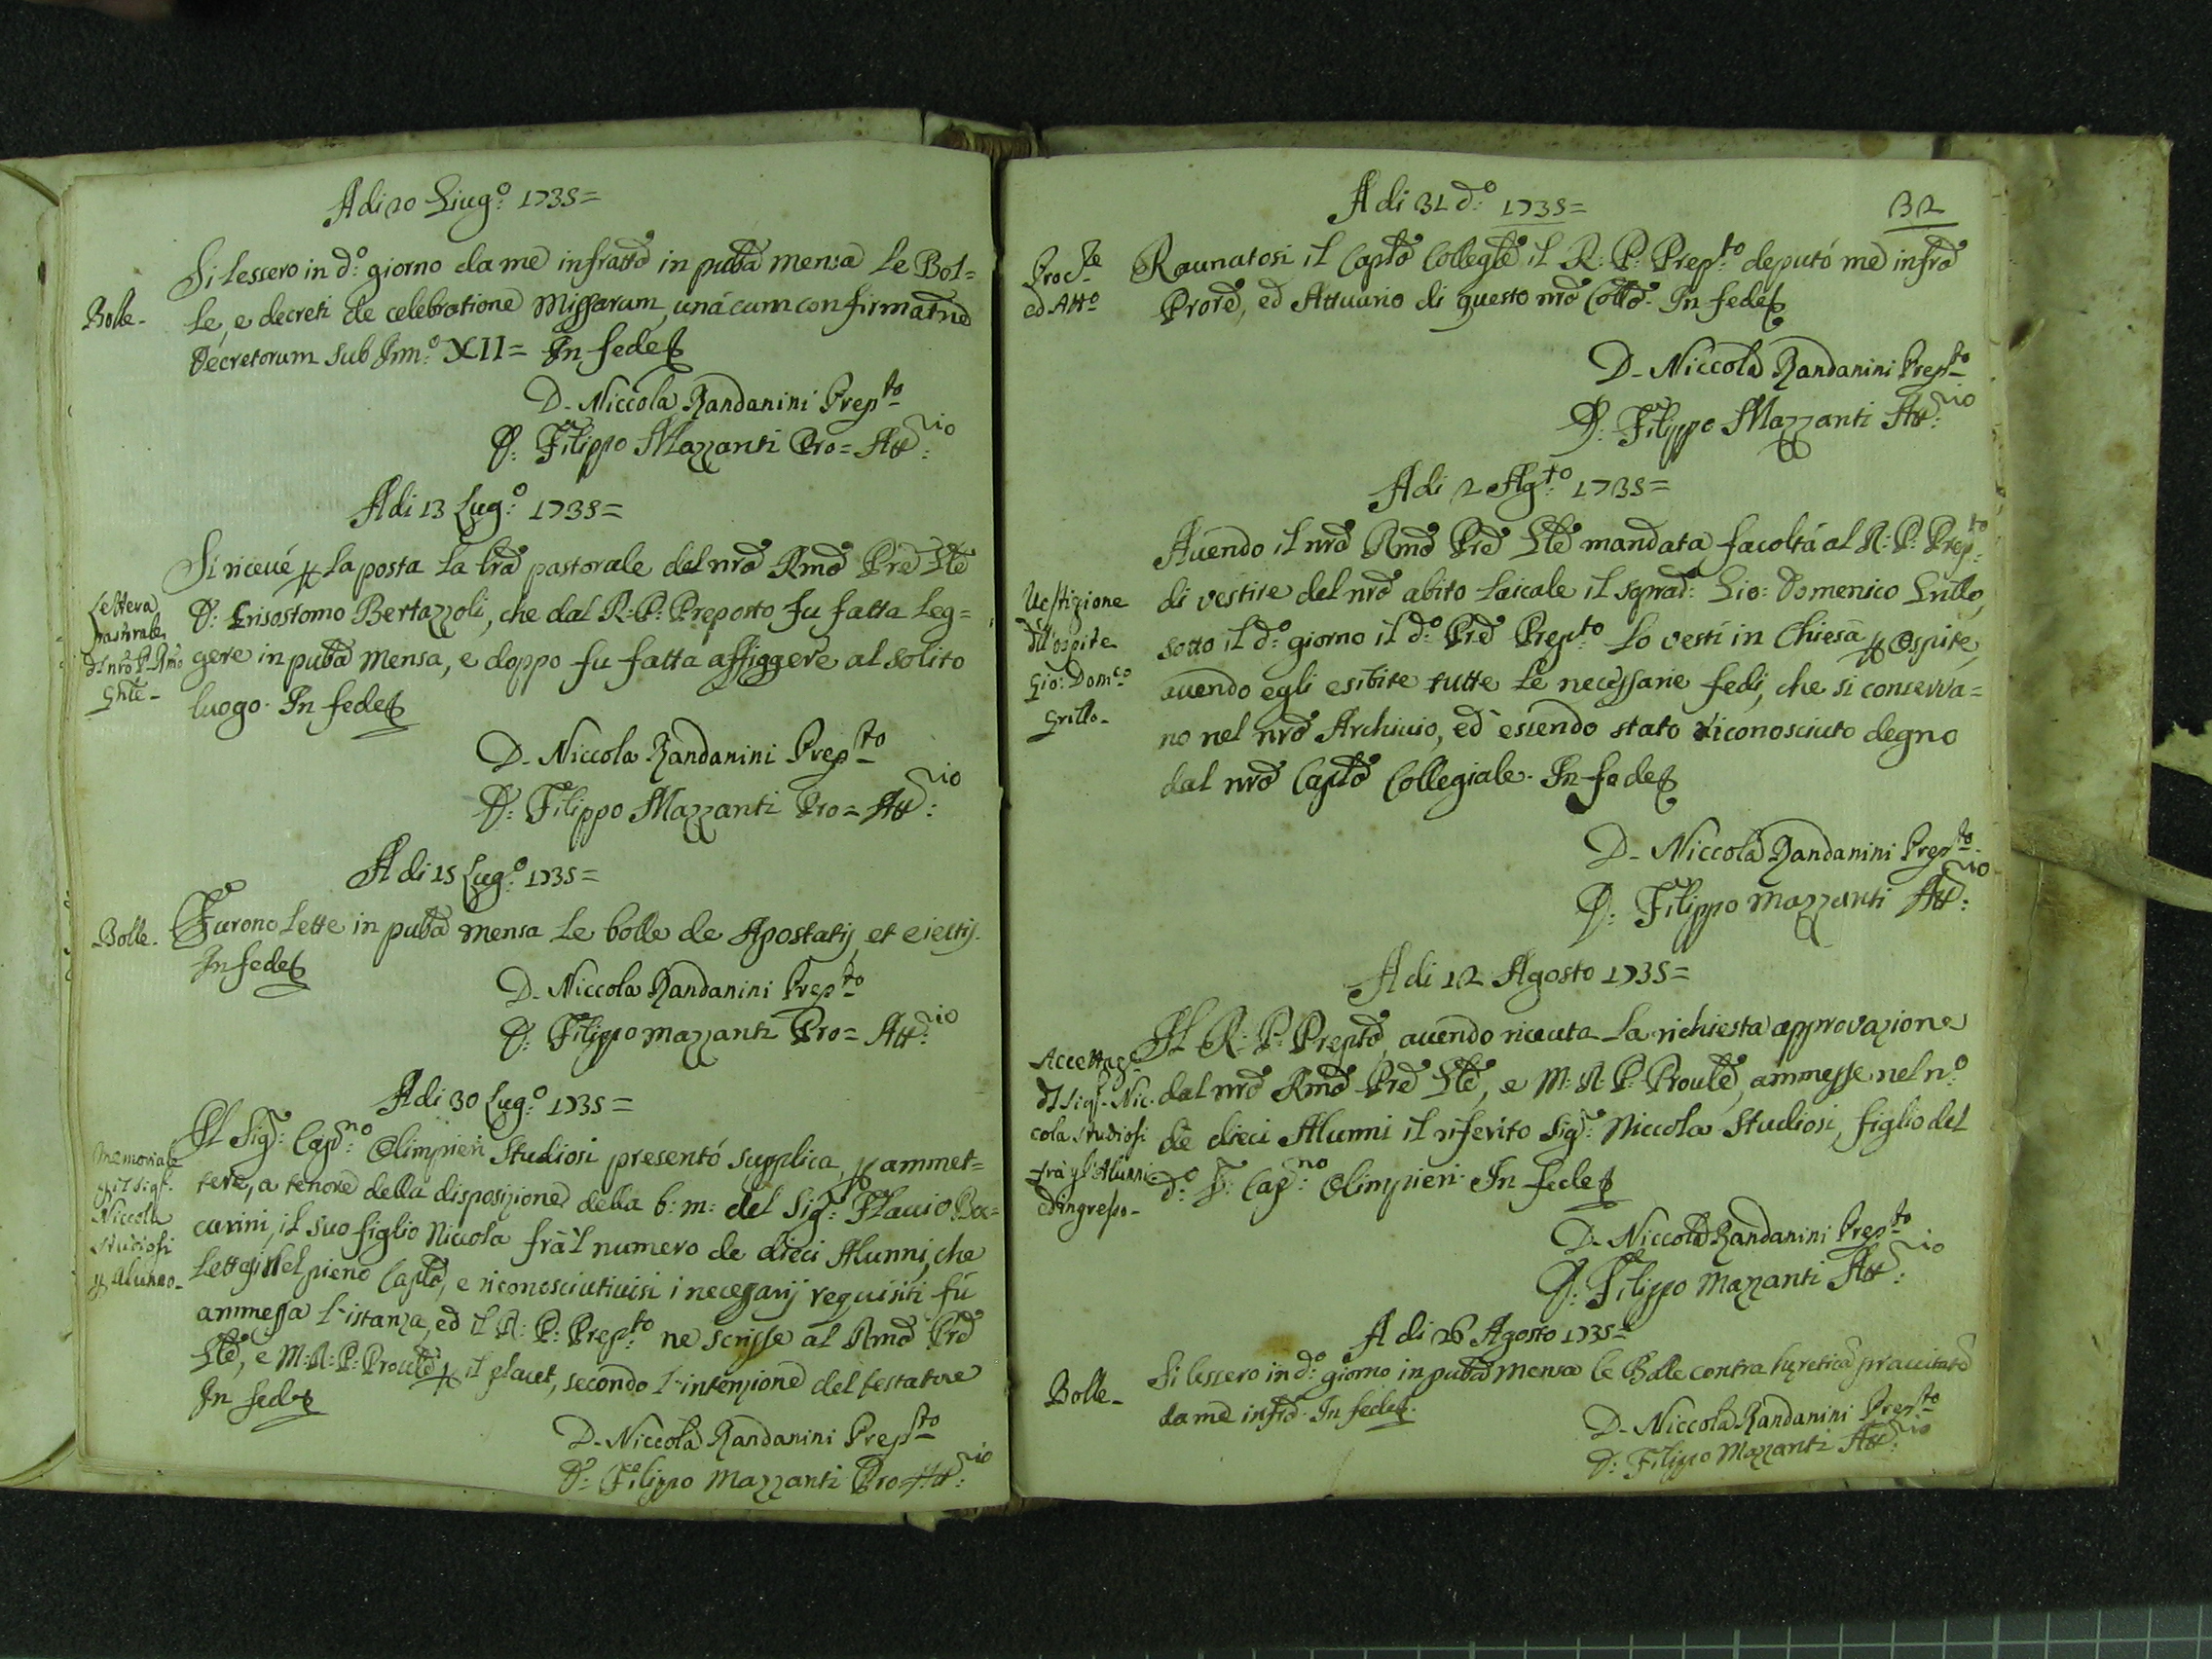 Adi 20 Giug:o 1735=
Si lessero in d:o giorno da me infratto in pubca mensa le Bol=
Bolle-
le, e decreti de celebratione Missarum, unà cum confirmatne
Decretorum sub Inn:o XII= In fede
D- Niccola Zandanini Prepto
D: Filippo Mazzanti Pro=Att:rio
A di 13 Lug:o 1735=
Si riceué p la posta la lra pastorale del nro Rmo Pre Gle
Lettera
pastorale
dl nro P. Rmo
Gnle-
D: Grisostomo Bertazzoli, che dal R: P: Preposto fu fatta leg=
gere in pubca mensa, e doppo fu fatta affiggere al solito
luogo. In fede
D- Niccola Zandanini Prepto
D: Filippo Mazzanti Pro=Att:rio
A di 15 Lug:o 1735=
Bolle.
Furono lette in pubca mensa le bolle de Apostatij et eiectij.
In fede
D- Niccola Zandanini Prepto
D: Filippo Mazzanti Pro=Att:rio
A di 30 Lug:o 1735=
Memoriale
p il Sigr.
Niccola
Studiosi
p Alunno-
Il Sigr: Cap:no Olimpieri Studiosi presentó supplica, p ammet=
tere, a tenore della disposizione della b: m: del Sigr: Flauio Boc=
carini, il suo figlio Niccola frà 'l numero de dieci Alunni, che
lettasi nel pieno Caplo, e riconosciutiuisi i necessarij requisiti fù
ammessa l'istanza, ed il R: P: Prep:to ne scrisse al Rmo Pre
Gle, e M: R: P: Proule p il placet, secondo l'intenzione del testatore
In fede
D- Niccola Zandanini Prepto
D: Filippo Mazzanti Pro=Att:rio
A di 31 d:o 1735=
32
Procre
ed Atto
Raunatosi il Caplo Collegle il R: P: Prep:to deputó me infro
Prore, ed Attuario di questo nro Collo. In fede
D- Niccola Zandanini Prepto
D: Filippo Mazzanti Att:rio
A di 2 Ag:to 1735=
Auendo il nro Rmo Pre Gle mandata facoltá al R: P: Prep:to
Uestizione
dll'ospite
Gio: Domco
Grillo-
di vestire del nro abito laicale il soprad: Gio: Domenico Grillo,
sotto il d:o giorno il d:o Pre Prep:to lo vestí in Chiesa p Ospite,
auendo egli esibite tutte le necessarie fedi, che si conserva=
no nel nro Archiuio, ed essendo stato riconosciuto degno
dal nro Caplo Collegiale. In fede
D- Niccola Zandanini Prepto
D: Filippo Mazzanti Att:rio
A di 12 Agosto 1735=
Accettaze
dl Sigr. Nic.
cola Studiosi
frà gl'Alunni
ed ingresso-
Il R: P: Prepto, auendo riceuta la richiesta approvazione
dal nro Rmo Pre Gle, e M: R: P: Proule, ammesse nel n:o
de dieci Alunni il riferito Sigr: Niccola Studiosi, figlio del
d:o S: Cap:no Olimpieri. In fede
D- Niccola Zandanini Prepto
D: Filippo Mazzanti Att:rio
A di 26 Agosto 1735=
Bolle-
Si lessero in d:o giorno in pubca mensa le Bolle contra hereticā prauitatē
da me infro. In fede.
D- Niccola Zandanini Prepto
D: Filippo Mazzanti Att:rio